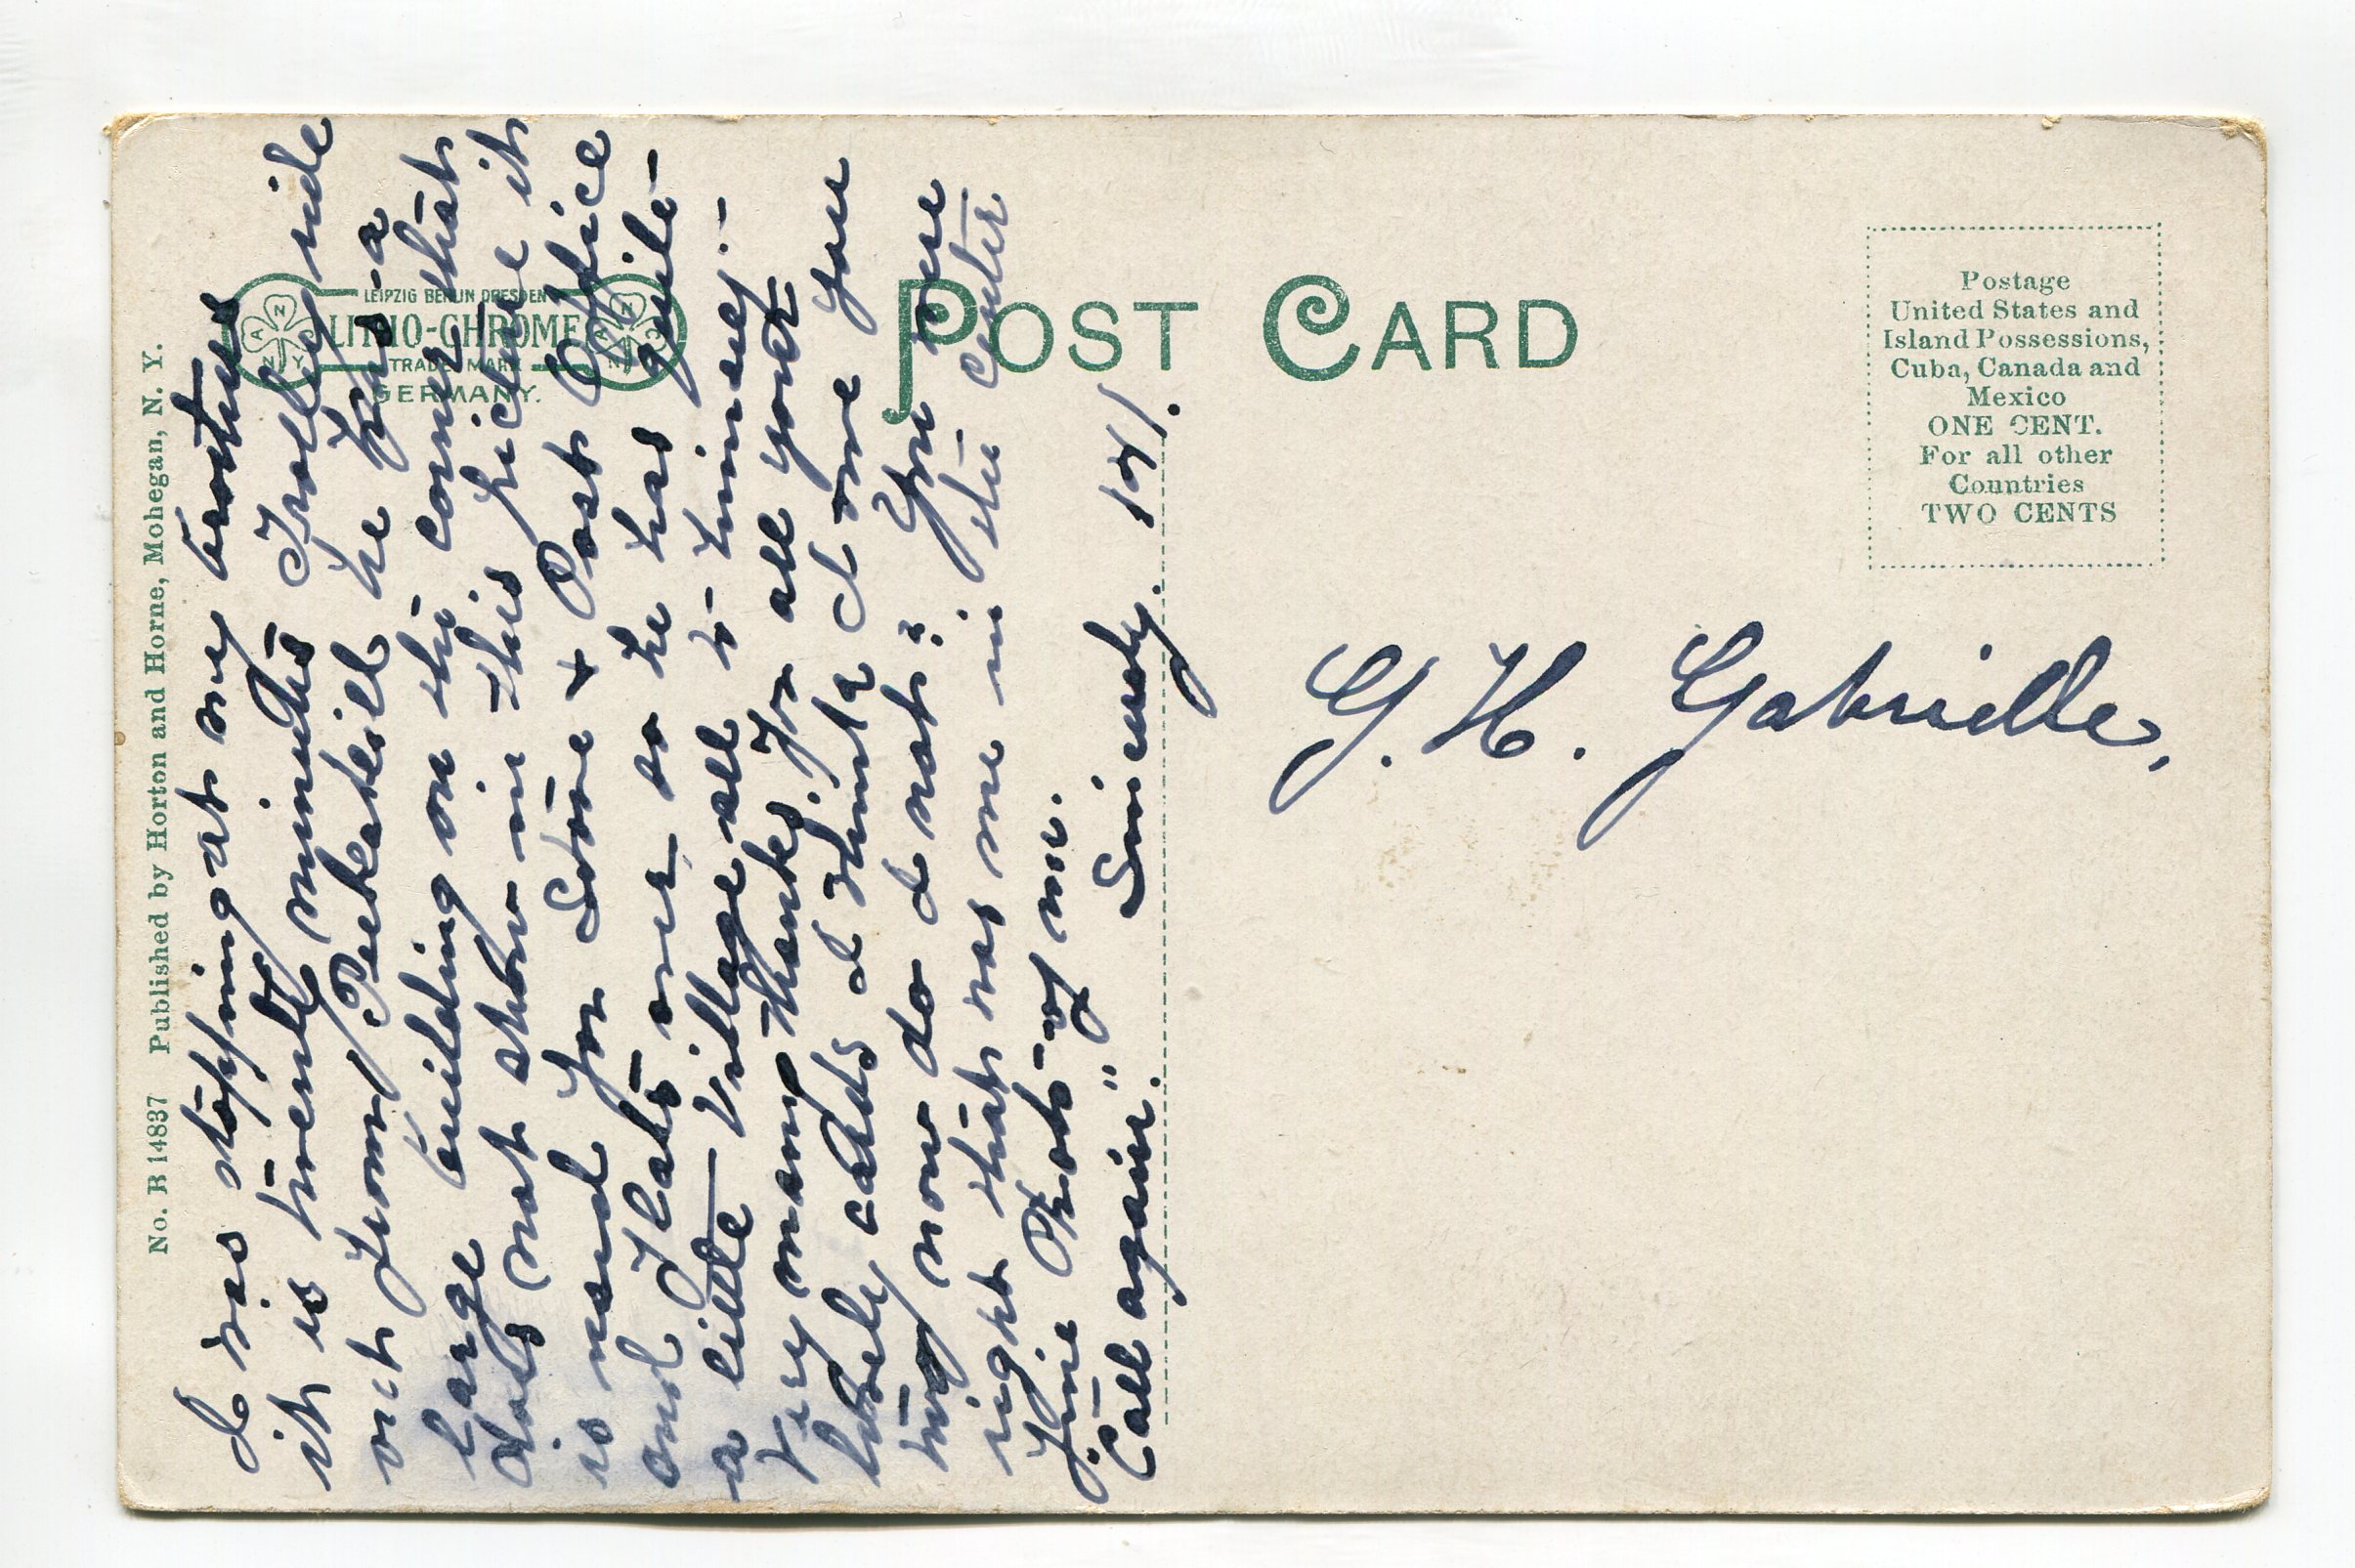 No. R 14837 Published by Horton and Horne, Mohegan, N. Y.
LEIPZIG BERLIN DRESDEN
LITHO-CHROME
TRADE MARK
GERMANY.
POST CARD
Postage
United States and
Island Possessions,
Cuba, Canada and
Mexico
ONE CENT.
For all other
Countries
TWO CENTS
I was stopping at my brothers
it is twenty minutes Trolley ride
out from Peekskill he has a
large building on the corner that
does not show in this picture it
is used for Store & Post Office
and Flats over so he has quite
a little Village all to himself.
Very many thanks for all your
lovely cards I think I owe you
two now do I not? You are
right that was me in the center
fine Photo of me.
Call again." Sincerely. 141.
G. H. Gabrielle.